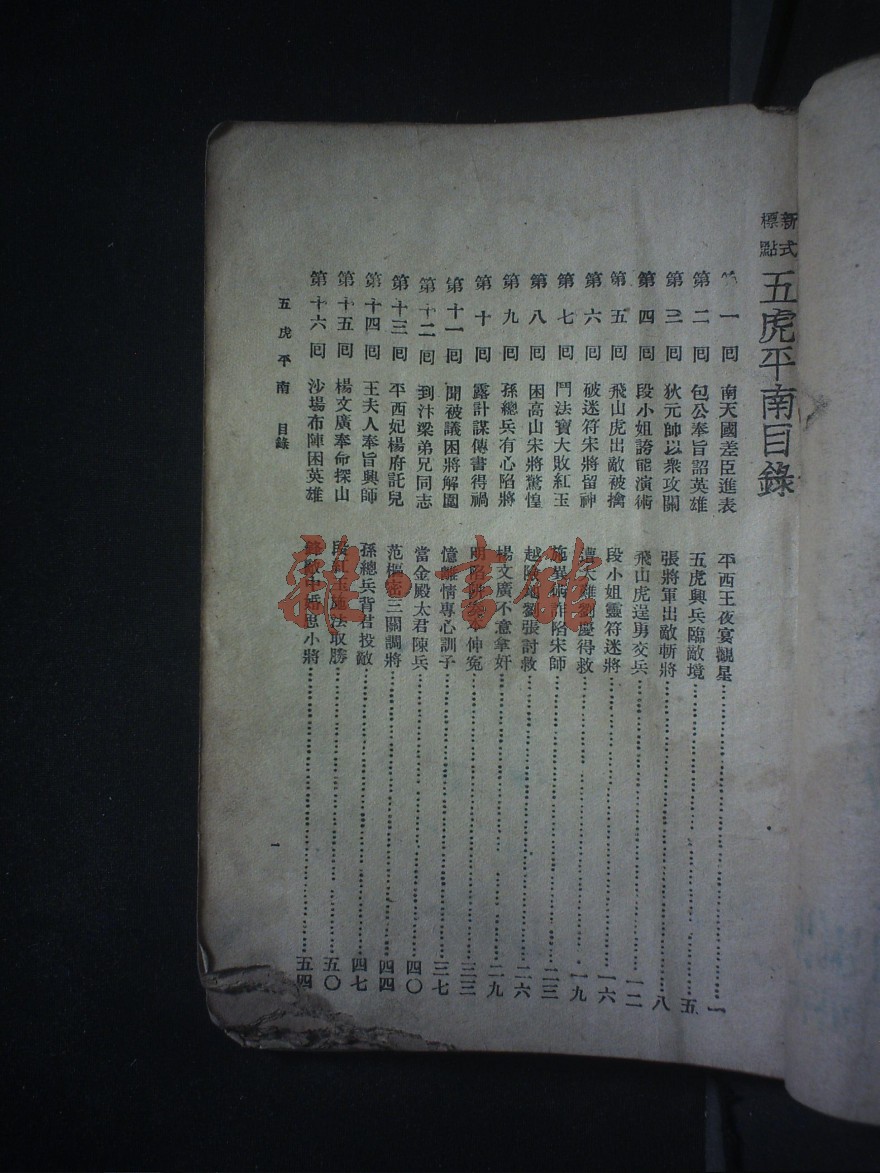 新式標點
五虎平南目錄
一回 南天國差臣進表 平西王夜宴觀星 一
第二回 包公奉旨詔英雄 五虎興兵臨敵境 五
第三回 狄元帥以衆攻關 張將軍出敵斬將 八
第四回 段小姐誇能演術 飛山虎逞勇交兵 一二
第五回 飛山虎出敵被擒 段小姐靈符迷將 一六
第六回 破迷符宋將留神 劉慶得救 一九
第七回 鬥法寶大敗紅玉 施異術 陷宋師 二三
第八回 困高山宋將驚惶 越險 劉張討救 二六
第九回 孫總兵有心陷將 楊文廣不意拿奸 二九
第十回 露計謀傳書得禍 明陷阱 伸冤 三三
第十一回 聞被議困將解圍 憶離情專心訓子 三七
第十二回 到汴梁弟兄同志 當金殿太君陳兵 四〇
第十三回 平西妃楊府託兒 范樞密三關調將 四四
第十四回 王夫人奉旨興師 孫總兵背君投敵 四七
第十五回 楊文廣奉命探山 段紅玉施法取勝 五〇
第十六回 沙場布陣困英雄 思小將 五四
五虎平南 目錄
一
雜·書館